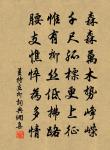 森森萬木勢崢嶸
千尺孤標更上征
惟有柳絲低拂路
腰支憔悴為多情